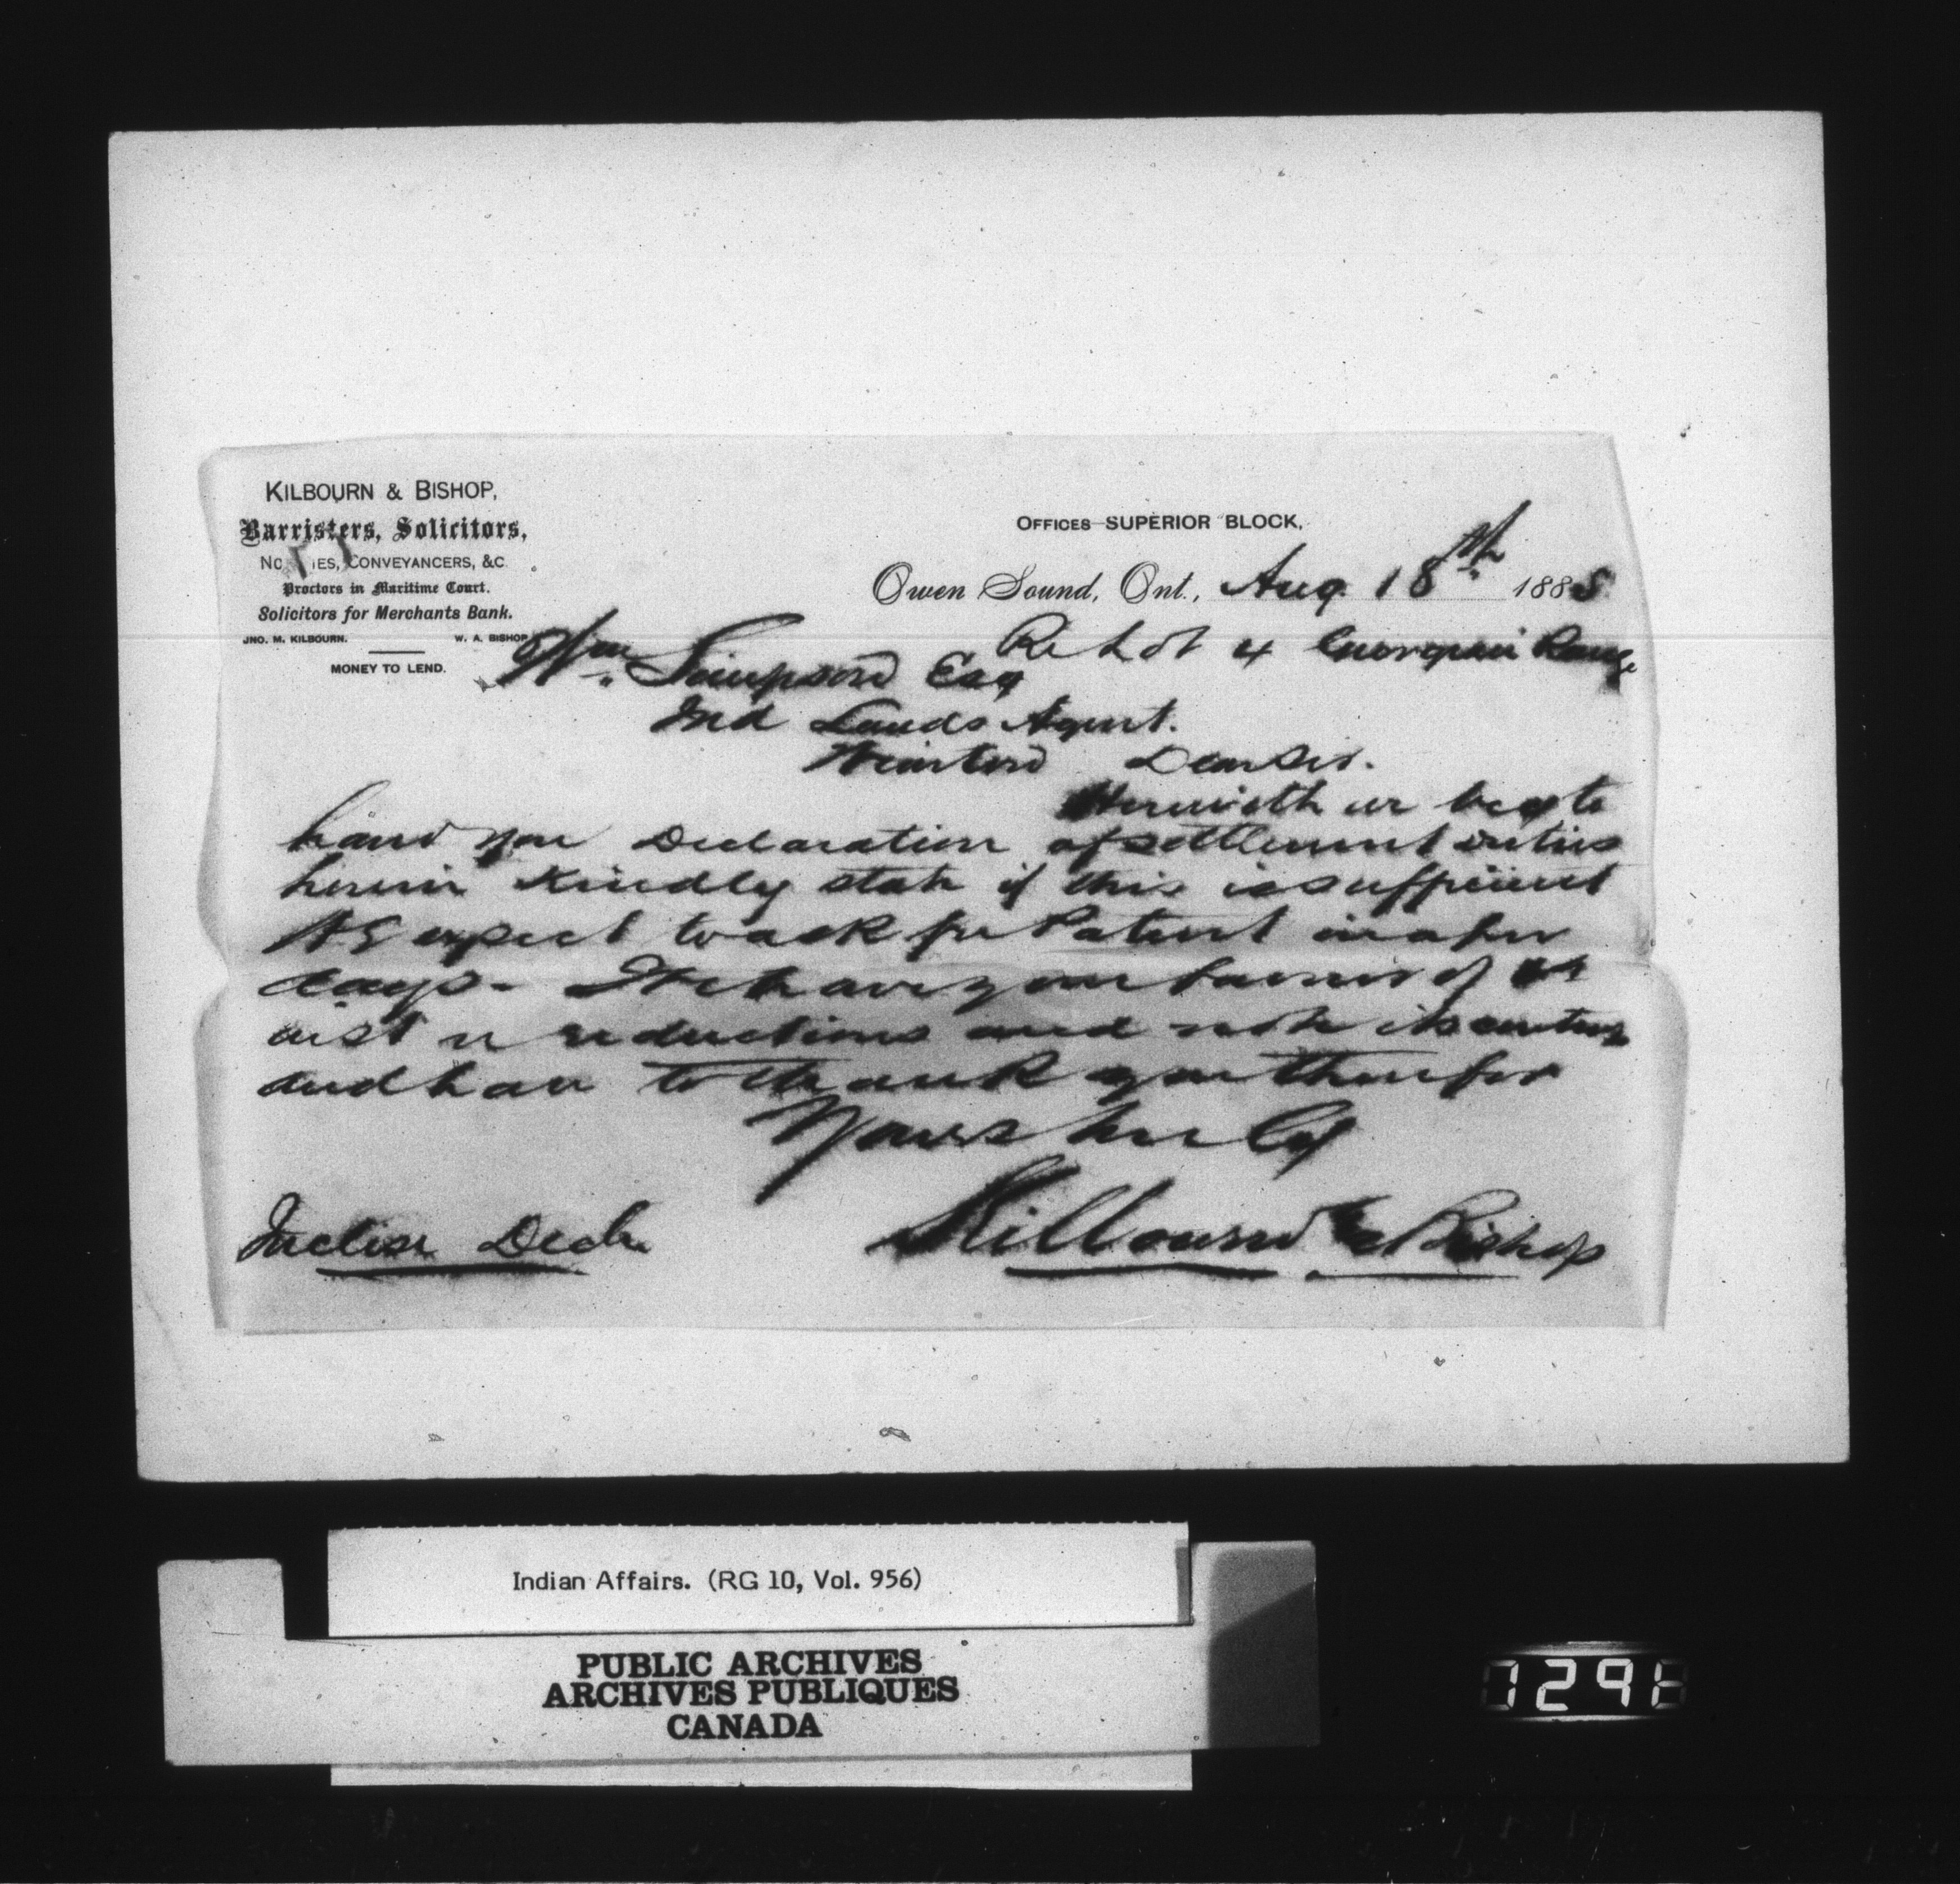 KILBOURN & BISHOP,
Barristers, Solicitors,
No ies, CONVEYANCERS, &C.
Proctors in Maritime Court.
Solicitors for Merchants Bank.
JNO. M. KILBOURN. W. A. BISHOP
MONEY TO LEND.
OFFICES SUPERIOR BLOCK,
Owen Sound, Ont., Aug. 18th 1888
Re Lot 4 Range
Wm. Simpson Esq
Ind Lands Agent.
Wiarton Dear Sir.
Herewith we beg to
hand you Declaration of settlement duties
herein Kindly state if this is sufficient
As expect to ask for Patent in a few
days. We have your favour of
inst re reductions and note its contents
and have to thank you therefor
Yours truly
Kilbourn & Bishop
Inclose Decln.
Indian Affairs. (RG 10, Vol. 956)
PUBLIC ARCHIVES
ARCHIVES PUBLIQUES
CANADA